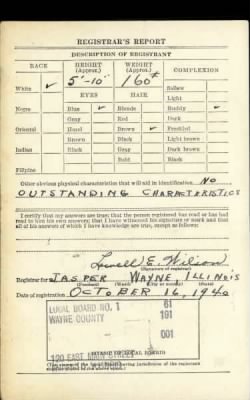 REGISTRAR'S REPORT
DESCRIPTION OF REGISTRANT
RACE HEIGHT (Approx.) WEIGHT (Approx.) COMPLEXION
5'-10" 160# Sallow
White ✓ EYES HAIR Light
Negro Blue ✓ Blonde Ruddy ✓
Gray Red Dark
Oriental Hazel Brown ✓ Freckled
Brown Black Light brown
Indian Black Gray Dark brown
Bald Black
Filipino
Other obvious physical characteristics that will aid in identification NO
OUTSTANDING CHARACTERISTICS
I certify that my answers are true; that the person registered has read or has had
read to him his own answers; that I have witnessed his signature or mark and that
all of his answers of which I have knowledge are true, except as follows:
Lowell E. Wilson
(Signature of registrar)
Registrar for JASPER WAYNE ILLINOIS
(Precinct) (Ward) (City or county) (State)
Date of registration OCTOBER 16, 1940
LOCAL BOARD NO. 1 61
WAYNE COUNTY 191
001
120 EAST MAIN STREET
(STAMP OF LOCAL BOARD)
(The stamp of the Local Board having jurisdiction of the registrant
shall be placed in the above space.)